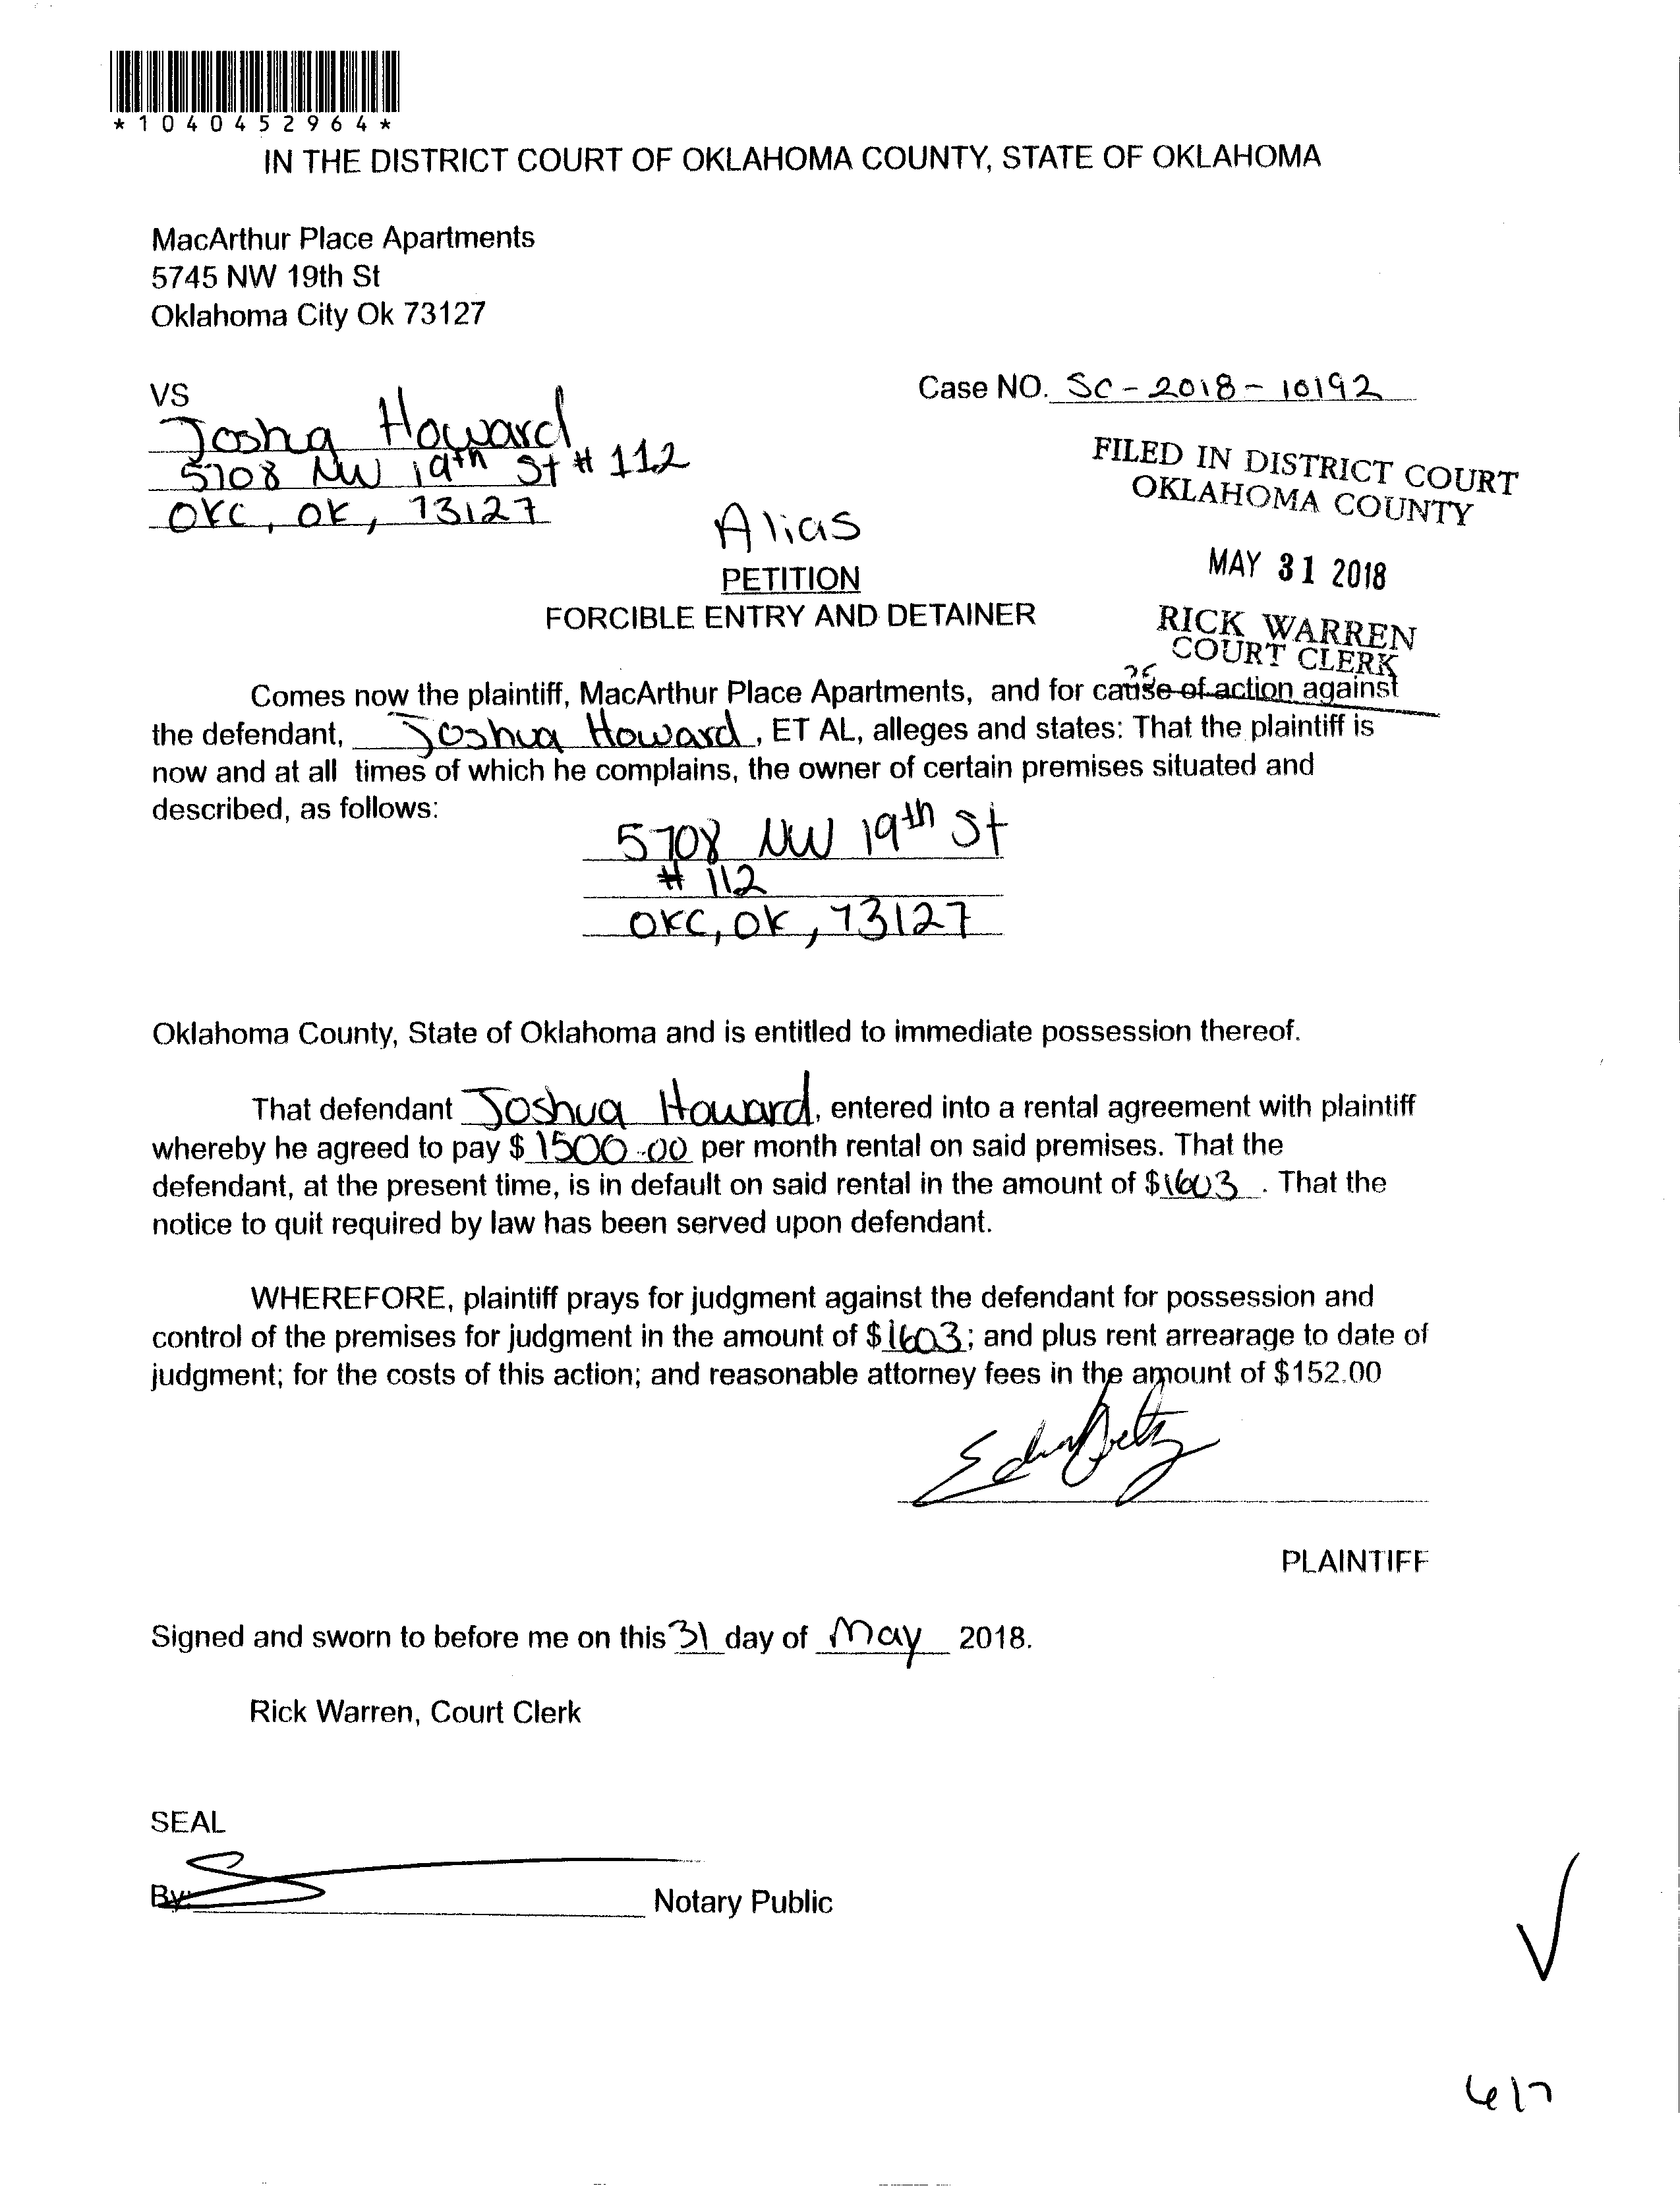 *1040452964*
IN THE DISTRICT COURT OF OKLAHOMA COUNTY, STATE OF OKLAHOMA
MacArthur Place Apartments
5745 NW 19th St
Oklahoma City Ok 73127
VS
Case NO. SC-2018-10192
Joshua Howard
5708 NW 19th St # 112
OKC, OK, 73127
FILED IN DISTRICT COURT
OKLAHOMA COUNTY
MAY 31 2018
RICK WARREN
COURT CLERK
Alias
PETITION
FORCIBLE ENTRY AND DETAINER
Comes now the plaintiff, MacArthur Place Apartments, and for cause of action against
the defendant, Joshua Howard, ET AL, alleges and states: That the plaintiff is
now and at all times of which he complains, the owner of certain premises situated and
described, as follows:
5708 NW 19th St
# 112
OKC, OK, 73127
Oklahoma County, State of Oklahoma and is entitled to immediate possession thereof.
That defendant Joshua Howard, entered into a rental agreement with plaintiff
whereby he agreed to pay $ 1500.00 per month rental on said premises. That the
defendant, at the present time, is in default on said rental in the amount of $1603. That the
notice to quit required by law has been served upon defendant.
WHEREFORE, plaintiff prays for judgment against the defendant for possession and
control of the premises for judgment in the amount of $1603; and plus rent arrearage to date of
judgment; for the costs of this action; and reasonable attorney fees in the amount of $152.00
PLAINTIFF
Signed and sworn to before me on this 31 day of May 2018.
Rick Warren, Court Clerk
SEAL
By: Notary Public